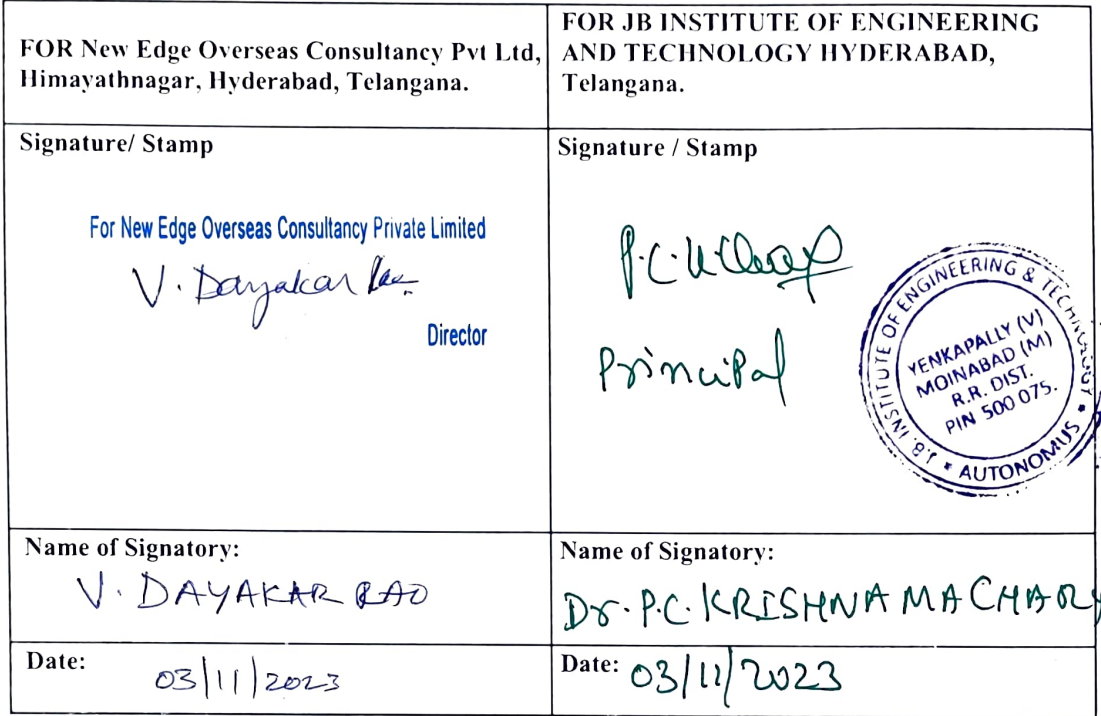 FOR New Edge Overseas Consultancy Pvt Ltd,
Himayathnagar, Hyderabad, Telangana.
FOR JB INSTITUTE OF ENGINEERING
AND TECHNOLOGY HYDERABAD,
Telangana.
Signature/ Stamp
For New Edge Overseas Consultancy Private Limited
V. Dayakar Rao
Director
Signature / Stamp
Principal
J.B. INSTITUTE OF ENGINEERING & TECHNOLOGY
YENKAPALLY (V)
MOINABAD (M)
R.R. DIST.
PIN 500 075.
* AUTONOMUS *
Name of Signatory:
V. DAYAKAR RAO
Name of Signatory:
Dr. P.C. KRISHNAMACHARY
Date:
03/11/2023
Date: 03/11/2023